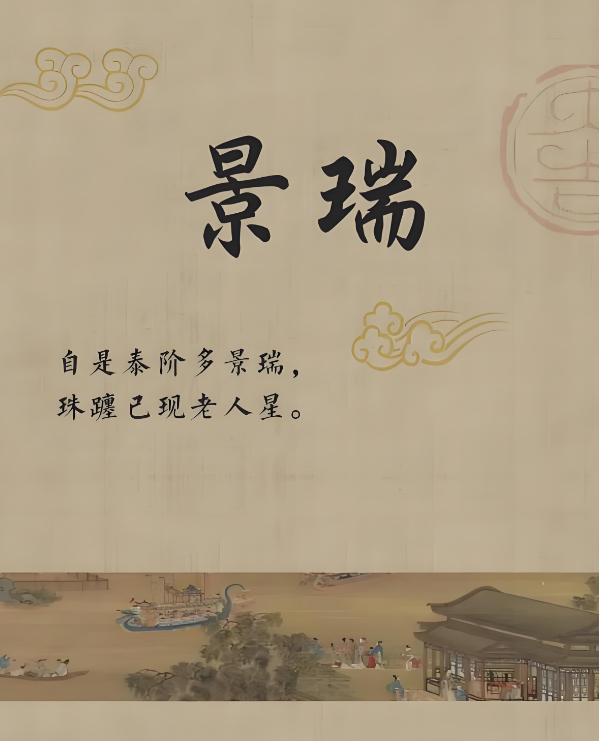 景瑞
自是泰阶多景瑞，
珠躔已现老人星。